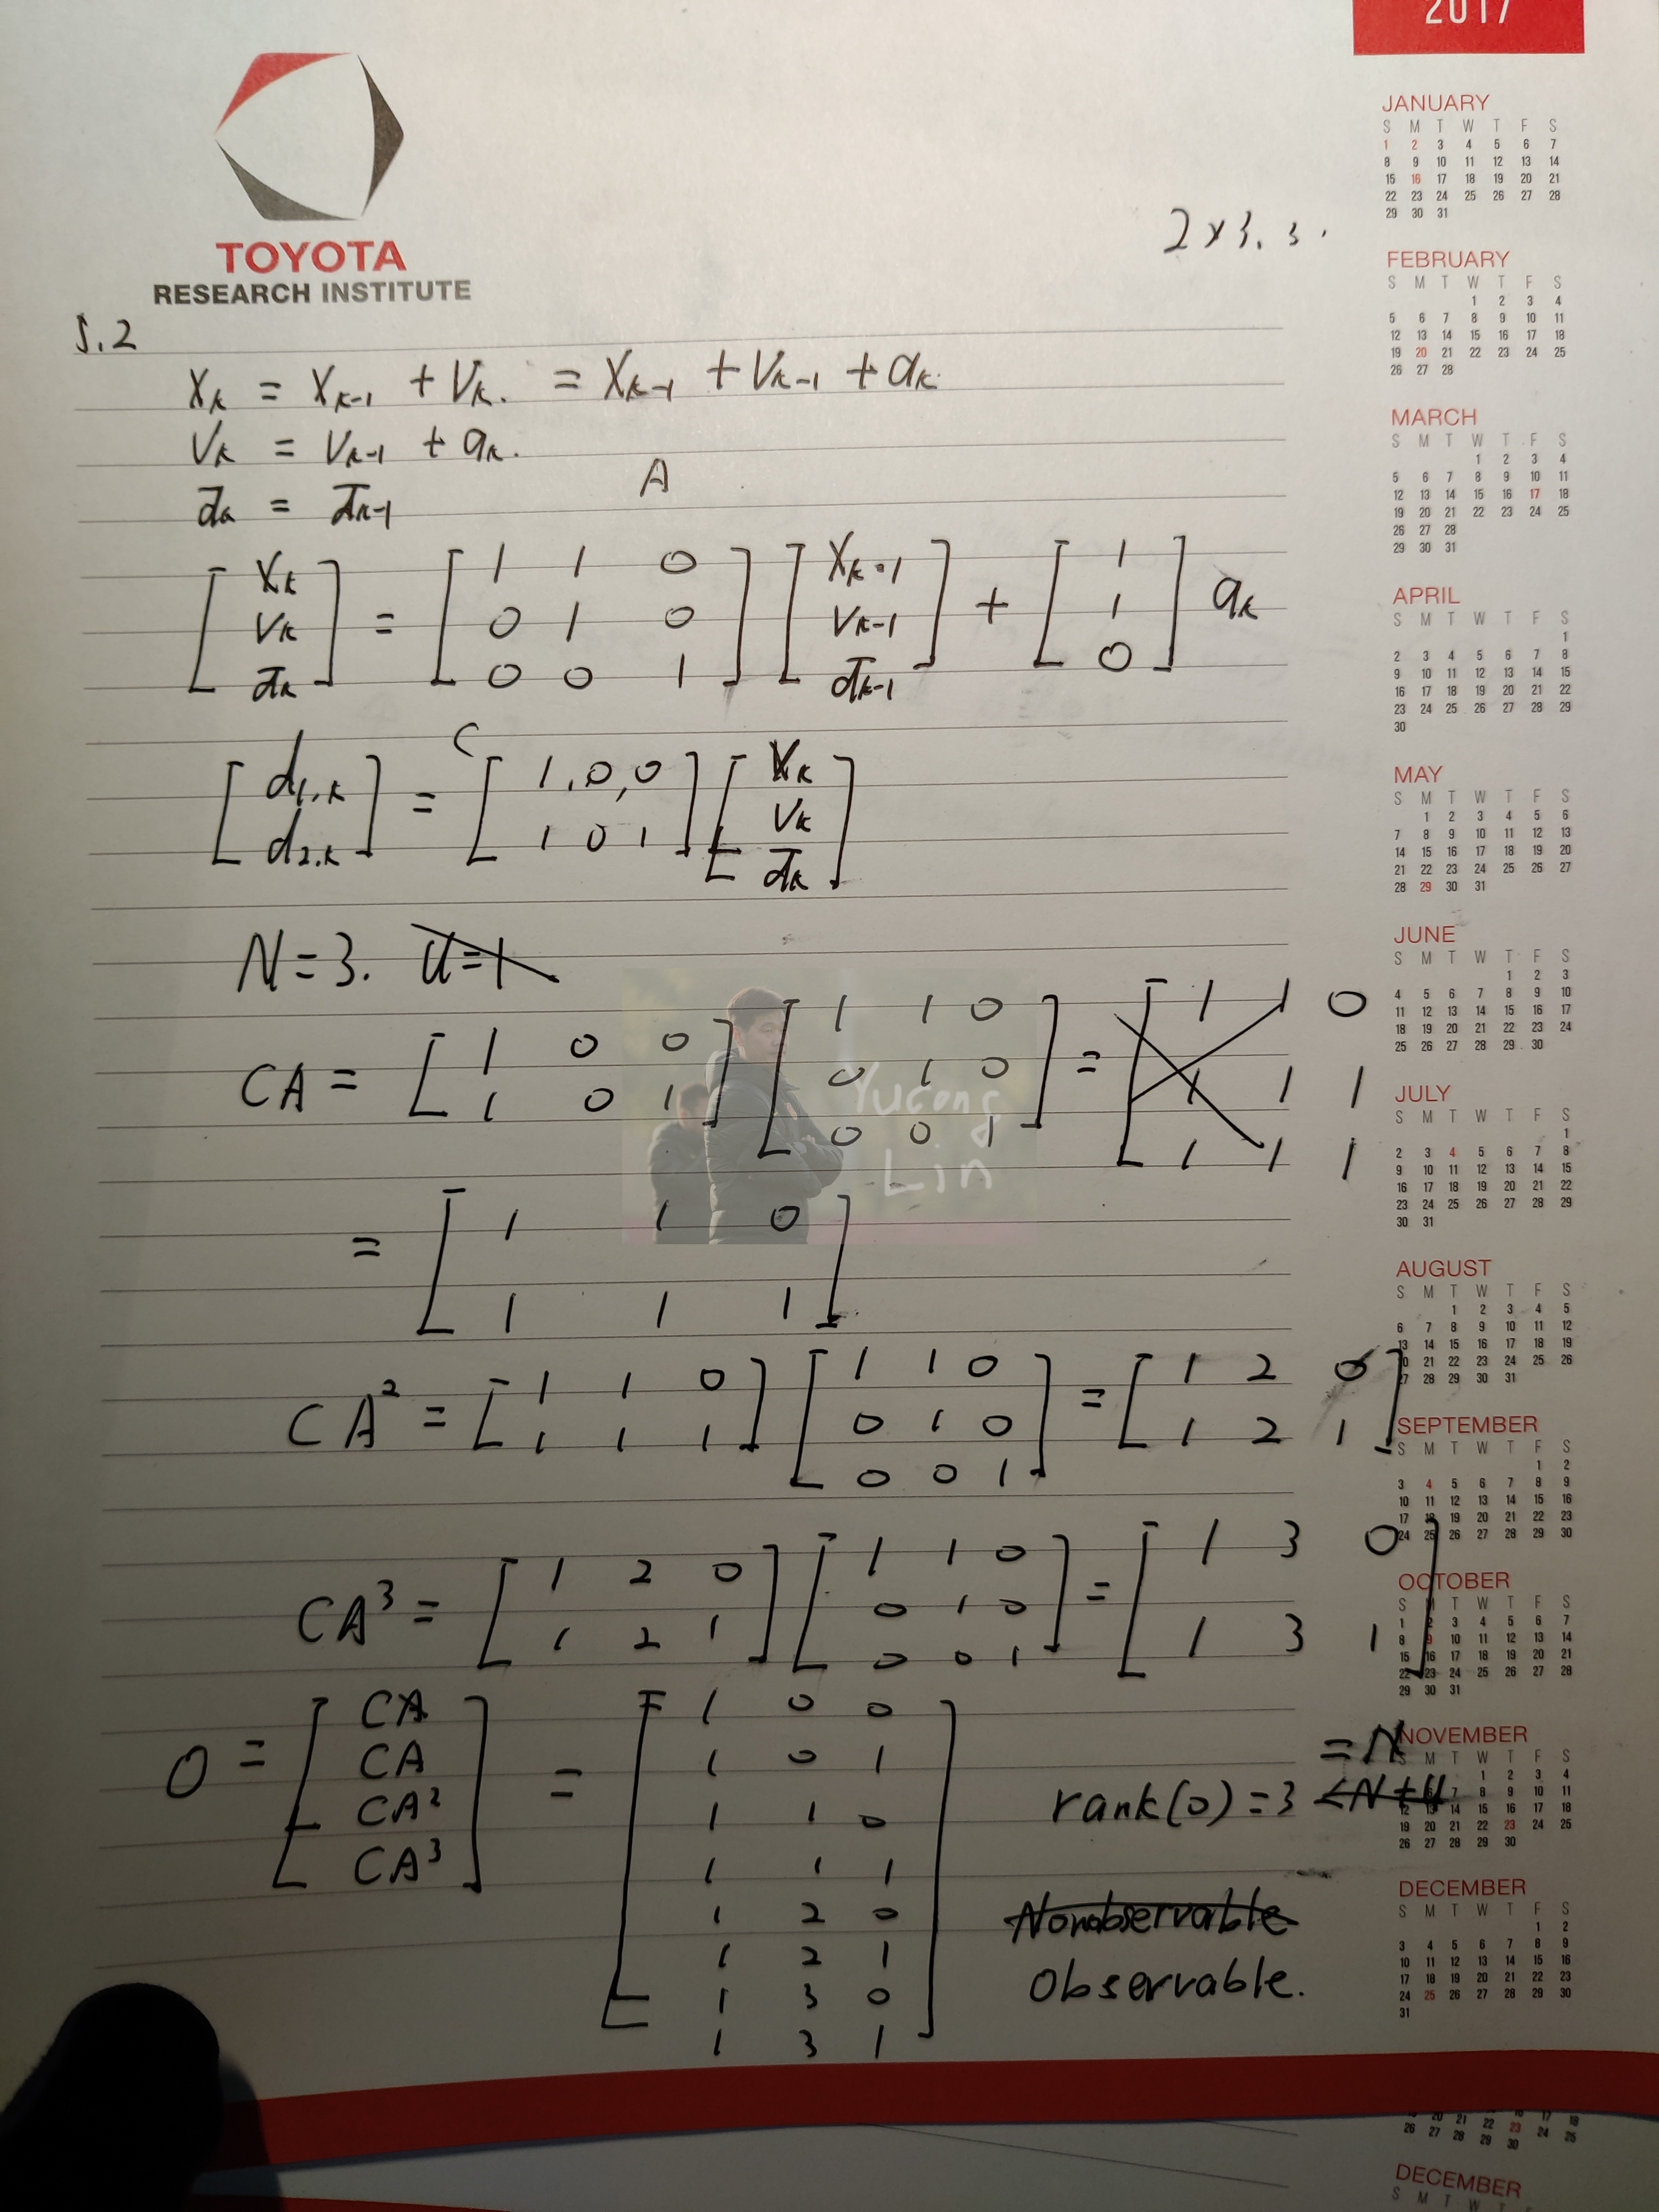 2017
TOYOTA
RESEARCH INSTITUTE
2×3. 3.
5.2
Xk = Xk-1 + Vk. = Xk-1 + Vk-1 + ak.
Vk = Vk-1 + ak.
d̄k = d̄k-1
A
[ Xk ] = [ 1 1 0 ] [ Xk-1 ] + [ 1 ] ak
[ Vk ] [ 0 1 0 ] [ Vk-1 ] [ 1 ]
[ d̄k ] [ 0 0 1 ] [ d̄k-1 ] [ 0 ]
C
[ d1,k ] = [ 1,0,0 ] [ Xk ]
[ d2,k ] [ 1 0 1 ] [ Vk ]
[ d̄k ]
N=3. U=1
CA = [ 1 0 0 ] [ 1 1 0 ] = [ 1 1 0
[ 1 0 1 ] [ 0 1 0 ] 1 1 1
[ 0 0 1 ] 1 1 1
Yucong
Lin
= [ 1 1 0 ]
[ 1 1 1 ]
CA² = [ 1 1 0 ] [ 1 1 0 ] = [ 1 2 0 ]
[ 1 1 1 ] [ 0 1 0 ] [ 1 2 1 ]
[ 0 0 1 ]
CA³ = [ 1 2 0 ] [ 1 1 0 ] = [ 1 3 0 ]
[ 1 2 1 ] [ 0 1 0 ] [ 1 3 1 ]
[ 0 0 1 ]
O = [ CA ] = [ 1 0 0 ]
[ CA ] [ 1 0 1 ]
[ CA² ] [ 1 1 0 ]
[ CA³ ] [ 1 1 1 ]
1 2 0
1 2 1
1 3 0
1 3 1
= N
rank(O) = 3 <N+U
Nonobservable
Observable.
JANUARY
S M T W T F S
1 2 3 4 5 6 7
8 9 10 11 12 13 14
15 16 17 18 19 20 21
22 23 24 25 26 27 28
29 30 31
FEBRUARY
S M T W T F S
1 2 3 4
5 6 7 8 9 10 11
12 13 14 15 16 17 18
19 20 21 22 23 24 25
26 27 28
MARCH
S M T W T F S
1 2 3 4
5 6 7 8 9 10 11
12 13 14 15 16 17 18
19 20 21 22 23 24 25
26 27 28
29 30 31
APRIL
S M T W T F S
1
2 3 4 5 6 7 8
9 10 11 12 13 14 15
16 17 18 19 20 21 22
23 24 25 26 27 28 29
30
MAY
S M T W T F S
1 2 3 4 5 6
7 8 9 10 11 12 13
14 15 16 17 18 19 20
21 22 23 24 25 26 27
28 29 30 31
JUNE
S M T W T F S
1 2 3
4 5 6 7 8 9 10
11 12 13 14 15 16 17
18 19 20 21 22 23 24
25 26 27 28 29 30
JULY
S M T W T F S
1
2 3 4 5 6 7 8
9 10 11 12 13 14 15
16 17 18 19 20 21 22
23 24 25 26 27 28 29
30 31
AUGUST
S M T W T F S
1 2 3 4 5
6 7 8 9 10 11 12
13 14 15 16 17 18 19
20 21 22 23 24 25 26
27 28 29 30 31
SEPTEMBER
S M T W T F S
1 2
3 4 5 6 7 8 9
10 11 12 13 14 15 16
17 18 19 20 21 22 23
24 25 26 27 28 29 30
OCTOBER
S M T W T F S
1 2 3 4 5 6 7
8 9 10 11 12 13 14
15 16 17 18 19 20 21
22 23 24 25 26 27 28
29 30 31
NOVEMBER
S M T W T F S
1 2 3 4
7 8 9 10 11
12 13 14 15 16 17 18
19 20 21 22 23 24 25
26 27 28 29 30
DECEMBER
S M T W T F S
1 2
3 4 5 6 7 8 9
10 11 12 13 14 15 16
17 18 19 20 21 22 23
24 25 26 27 28 29 30
31
20 21 22 23 24 25
26 27 28 29 30
DECEMBER
S M T W T F S